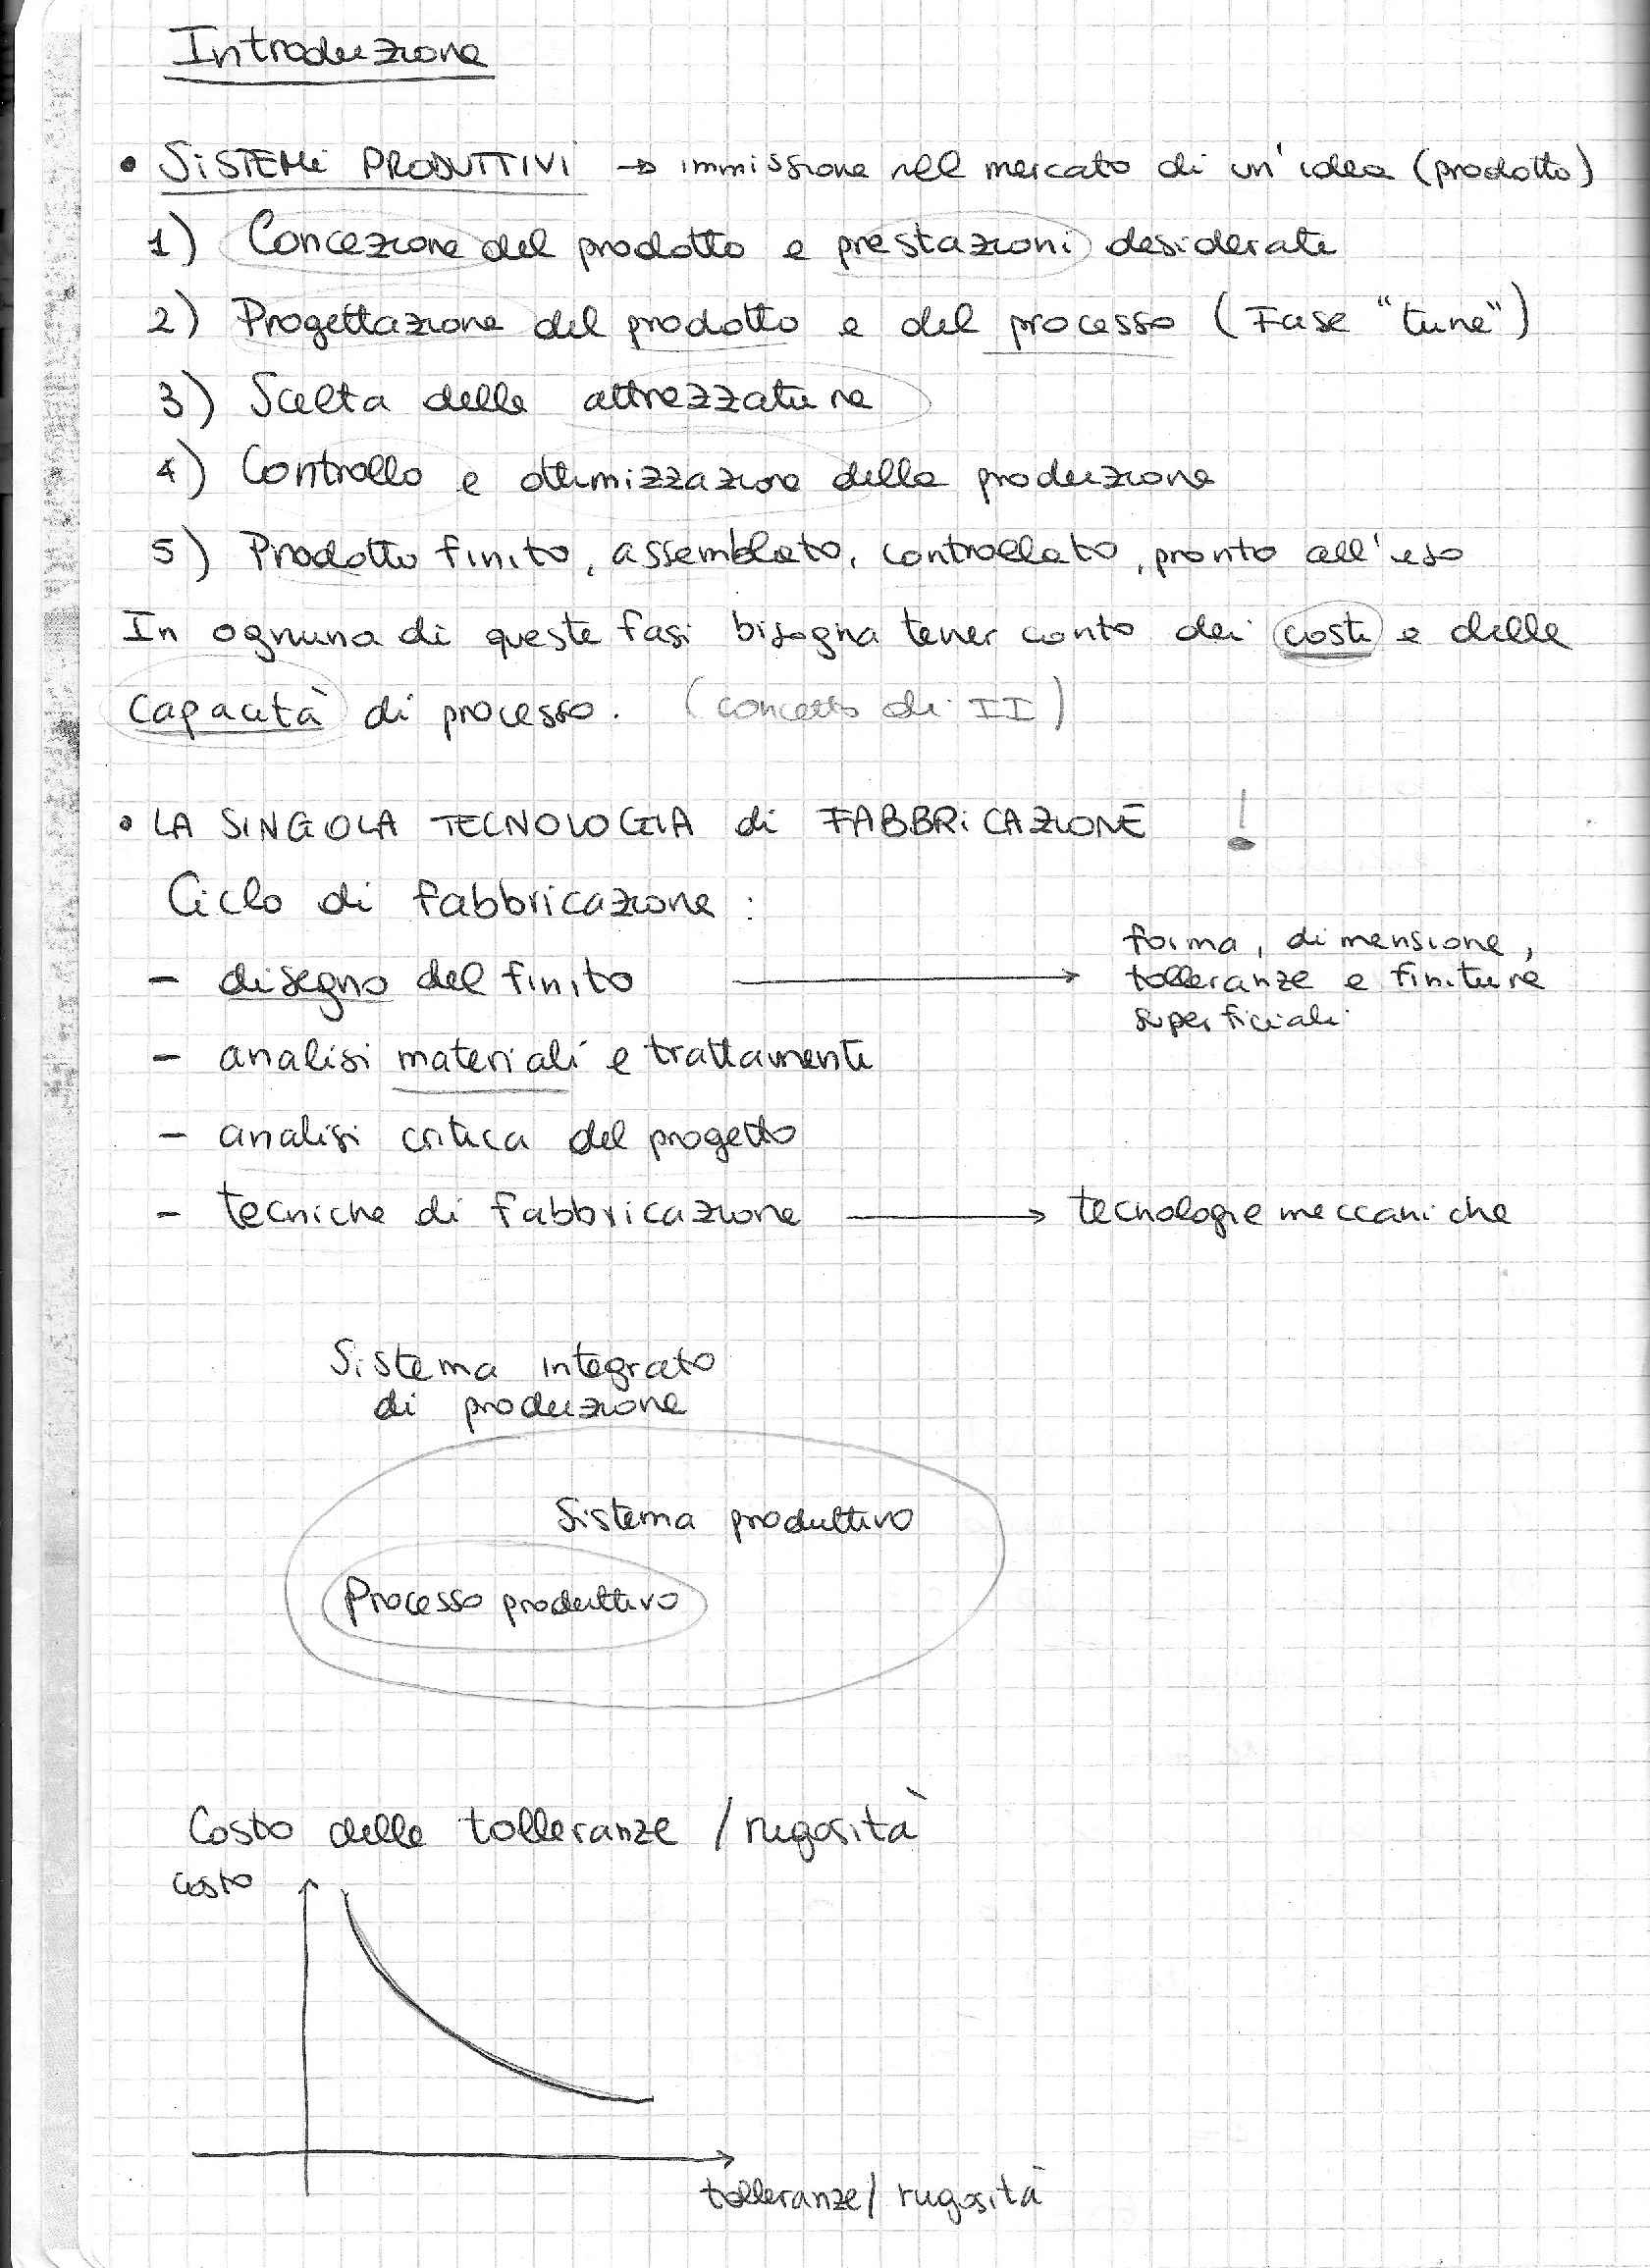 Introduzione
• SISTEMI PRODUTTIVI → immissione nel mercato di un'idea (prodotto)
1) Concezione del prodotto e prestazioni desiderate
2) Progettazione del prodotto e del processo (Fase "tune")
3) Scelta delle attrezzature
4) Controllo e ottimizzazione della produzione
5) Prodotto finito, assemblato, controllato, pronto all'uso
In ognuna di queste fasi bisogna tener conto dei costi e delle
capacità di processo. (concetto di II)
• LA SINGOLA TECNOLOGIA di FABBRICAZIONE !
Ciclo di fabbricazione :
- disegno del finito → forma, dimensione,
tolleranze e finiture
superficiali
- analisi materiali e trattamenti
- analisi critica del progetto
- tecniche di fabbricazione → tecnologie meccaniche
Sistema integrato
di produzione
Sistema produttivo
Processo produttivo
Costo delle tolleranze / rugosità
costo
tolleranze/ rugosità